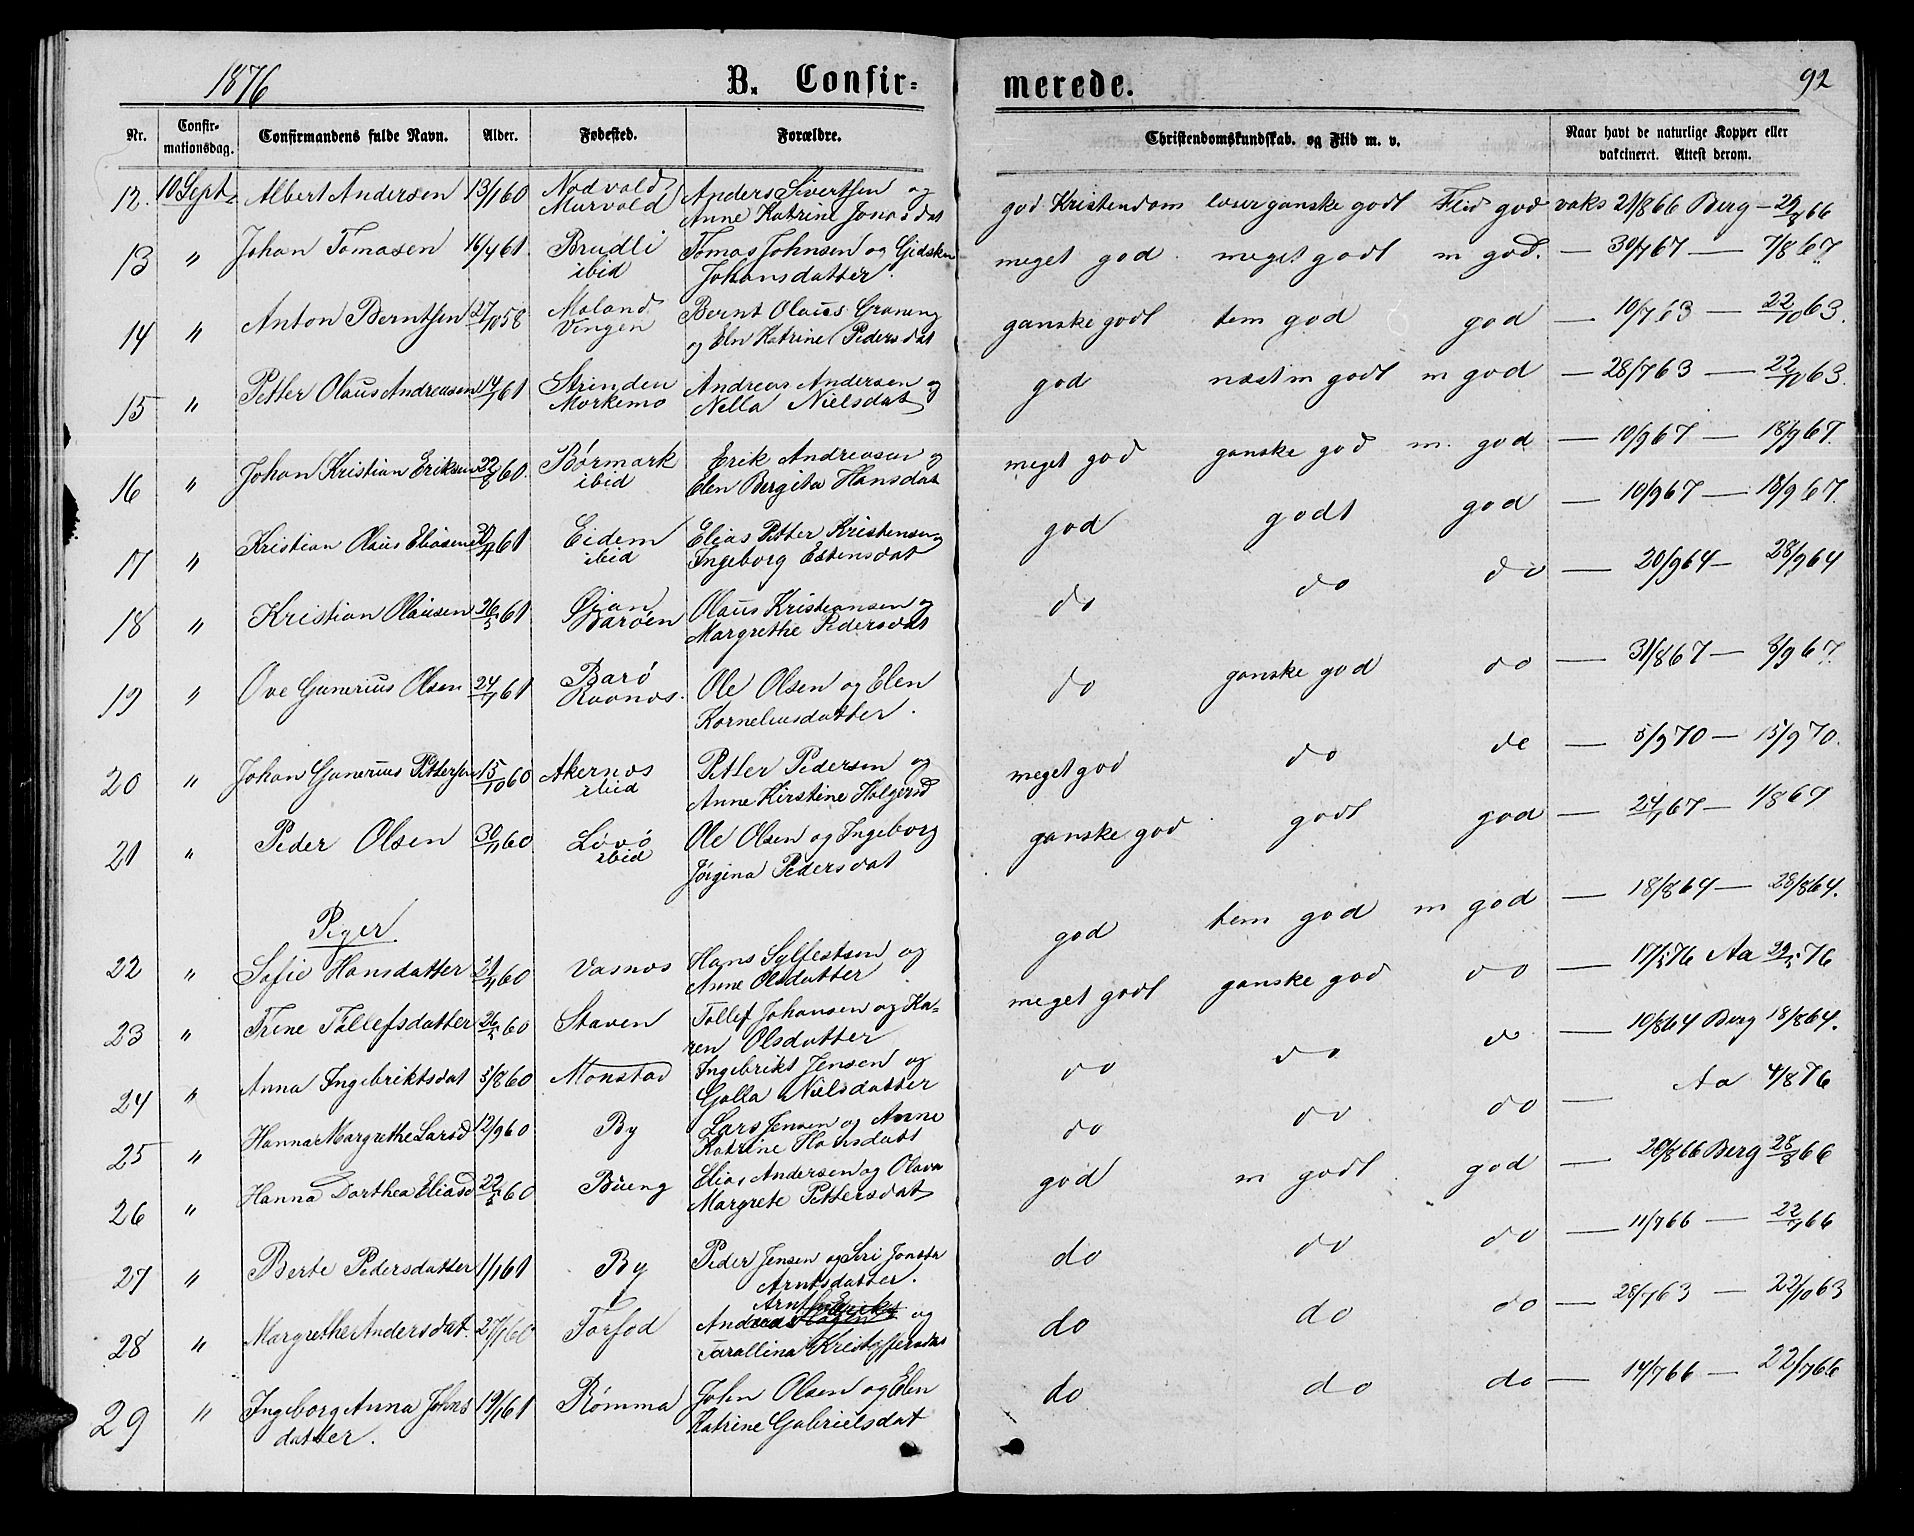 1876
B. Confir-
merede.
92
Nr.
Confir-
mationsdag.
Confirmandens fulde Navn.
Alder.
Fødested.
Forældre.
Christendomskundskab, og Flid m. v.
Naar havt de naturlige Kopper eller
vakcineret. Attest derom.
12. 10 Sept. Albert Andersen 13/1 60 Nodvold Anders Sivertsen og
Murvold Anne Katrine Jonasdat
god Kristendom læser ganske godt Flid god vaks 21/8 66 Berg 66
13 " Johan Tomasen 16/4 61. Brudli Tomas Johnsen og Gidsken
ibid Johansdatter.
meget god meget godt m god. — 30/7 67 — 7/8 67.
14 " Anton Berntsen 27/10 58 Moland Bernt Olaus Graning
Vingen og Eln Katrine Pedersdat
ganske godt tem god god — 10/7 63 — 22/10 63.
15 " Petter Olaus Andreasen 61 Strinden Andreas Andersen og
Morkemo Nella Nielsdat
god næst m godt m god — 28/7 63 — 22/10 63.
16 " Johan Kristian Eriksen 22/8 60. Børmark Erik Andreasen og
ibid Elen Bergita Hansdat
meget god ganske god m. god — 10/9 67 — 18/9 67.
17 " Kristian Olaus Eliasen 61 Eidem Elias Petter Kristensen og
ibid Ingeborg Estensdat
god godt god — 10/9 67 — 18/9 67.
18 " Kristian Olausen 26/5 61 Øian Olaus Kristiansen og
Barøen Margrethe Pedersdat
do do do — 20/9 64 — 28/9 64
19 " Ove Gunerius Olsen 24/1 61 Barø Ole Olsen og Elen
Raanes. Korneliusdatter.
do ganske god do — 31/8 67 — 8/9 67.
20 " Johan Gunerius Pettersen 15/10 60 Akernes Petter Pedersen og
ibid Anne Kirstine Holgersd
meget god do do — 5/9 70 — 15/9 70.
21 " Peder Olsen 30/11 60 Lovø Ole Olsen og Ingeborg
ibid Jørgina Pedersdat
ganske god godt god — 67 — 1/8 67
Piger
22 " Sofie Hansdatter 60 Vasnes Hans Sylfestsen og
Anne Olsdatter
god tem god m god — 18/8 64 — 28/8 64.
23 " Trene Tollefsdatter 26/5 60 Staven Tollef Johansen og Ka-
ren Olsdatter
meget godt ganske god do — 17/5 76 Aa 76
24 " Anna Ingebriktsdat 5/8 60 Monstad Ingebrikt Jensen og
Golla Nielsdatter
do do do — 10/8 64 Berg 18/8 64.
25 " Hanna Margrethe Larsd 12/9 60 By Lars Jensen og Anne
Katrine Hansdatt
do do do — Aa 4/8 76
26 " Hanna Dorthea Eliasd 22/5 60 Bueng Elias Andersen og Olava
Margrete Pettersdat
god m godt god — 20/8 66 Berg 28/8 66
27 " Berte Pedersdatter 1/1 61 By Peder Jensen og Seri Jonetta
Arntsdatter.
do do do — 11/7 66 — 66
28 " Margrethe Andersdat. 27/1 60 Forfod Arnt
og
Kristoffersdat
do do do — 28/7 63 — 22/10 63
29 " Ingeborg Anna Johns 19/1 61 Rømma John Olsen og Elen
datter. Katrine Gabrielsdat
do do do — 14/7 66 — 22/7 66